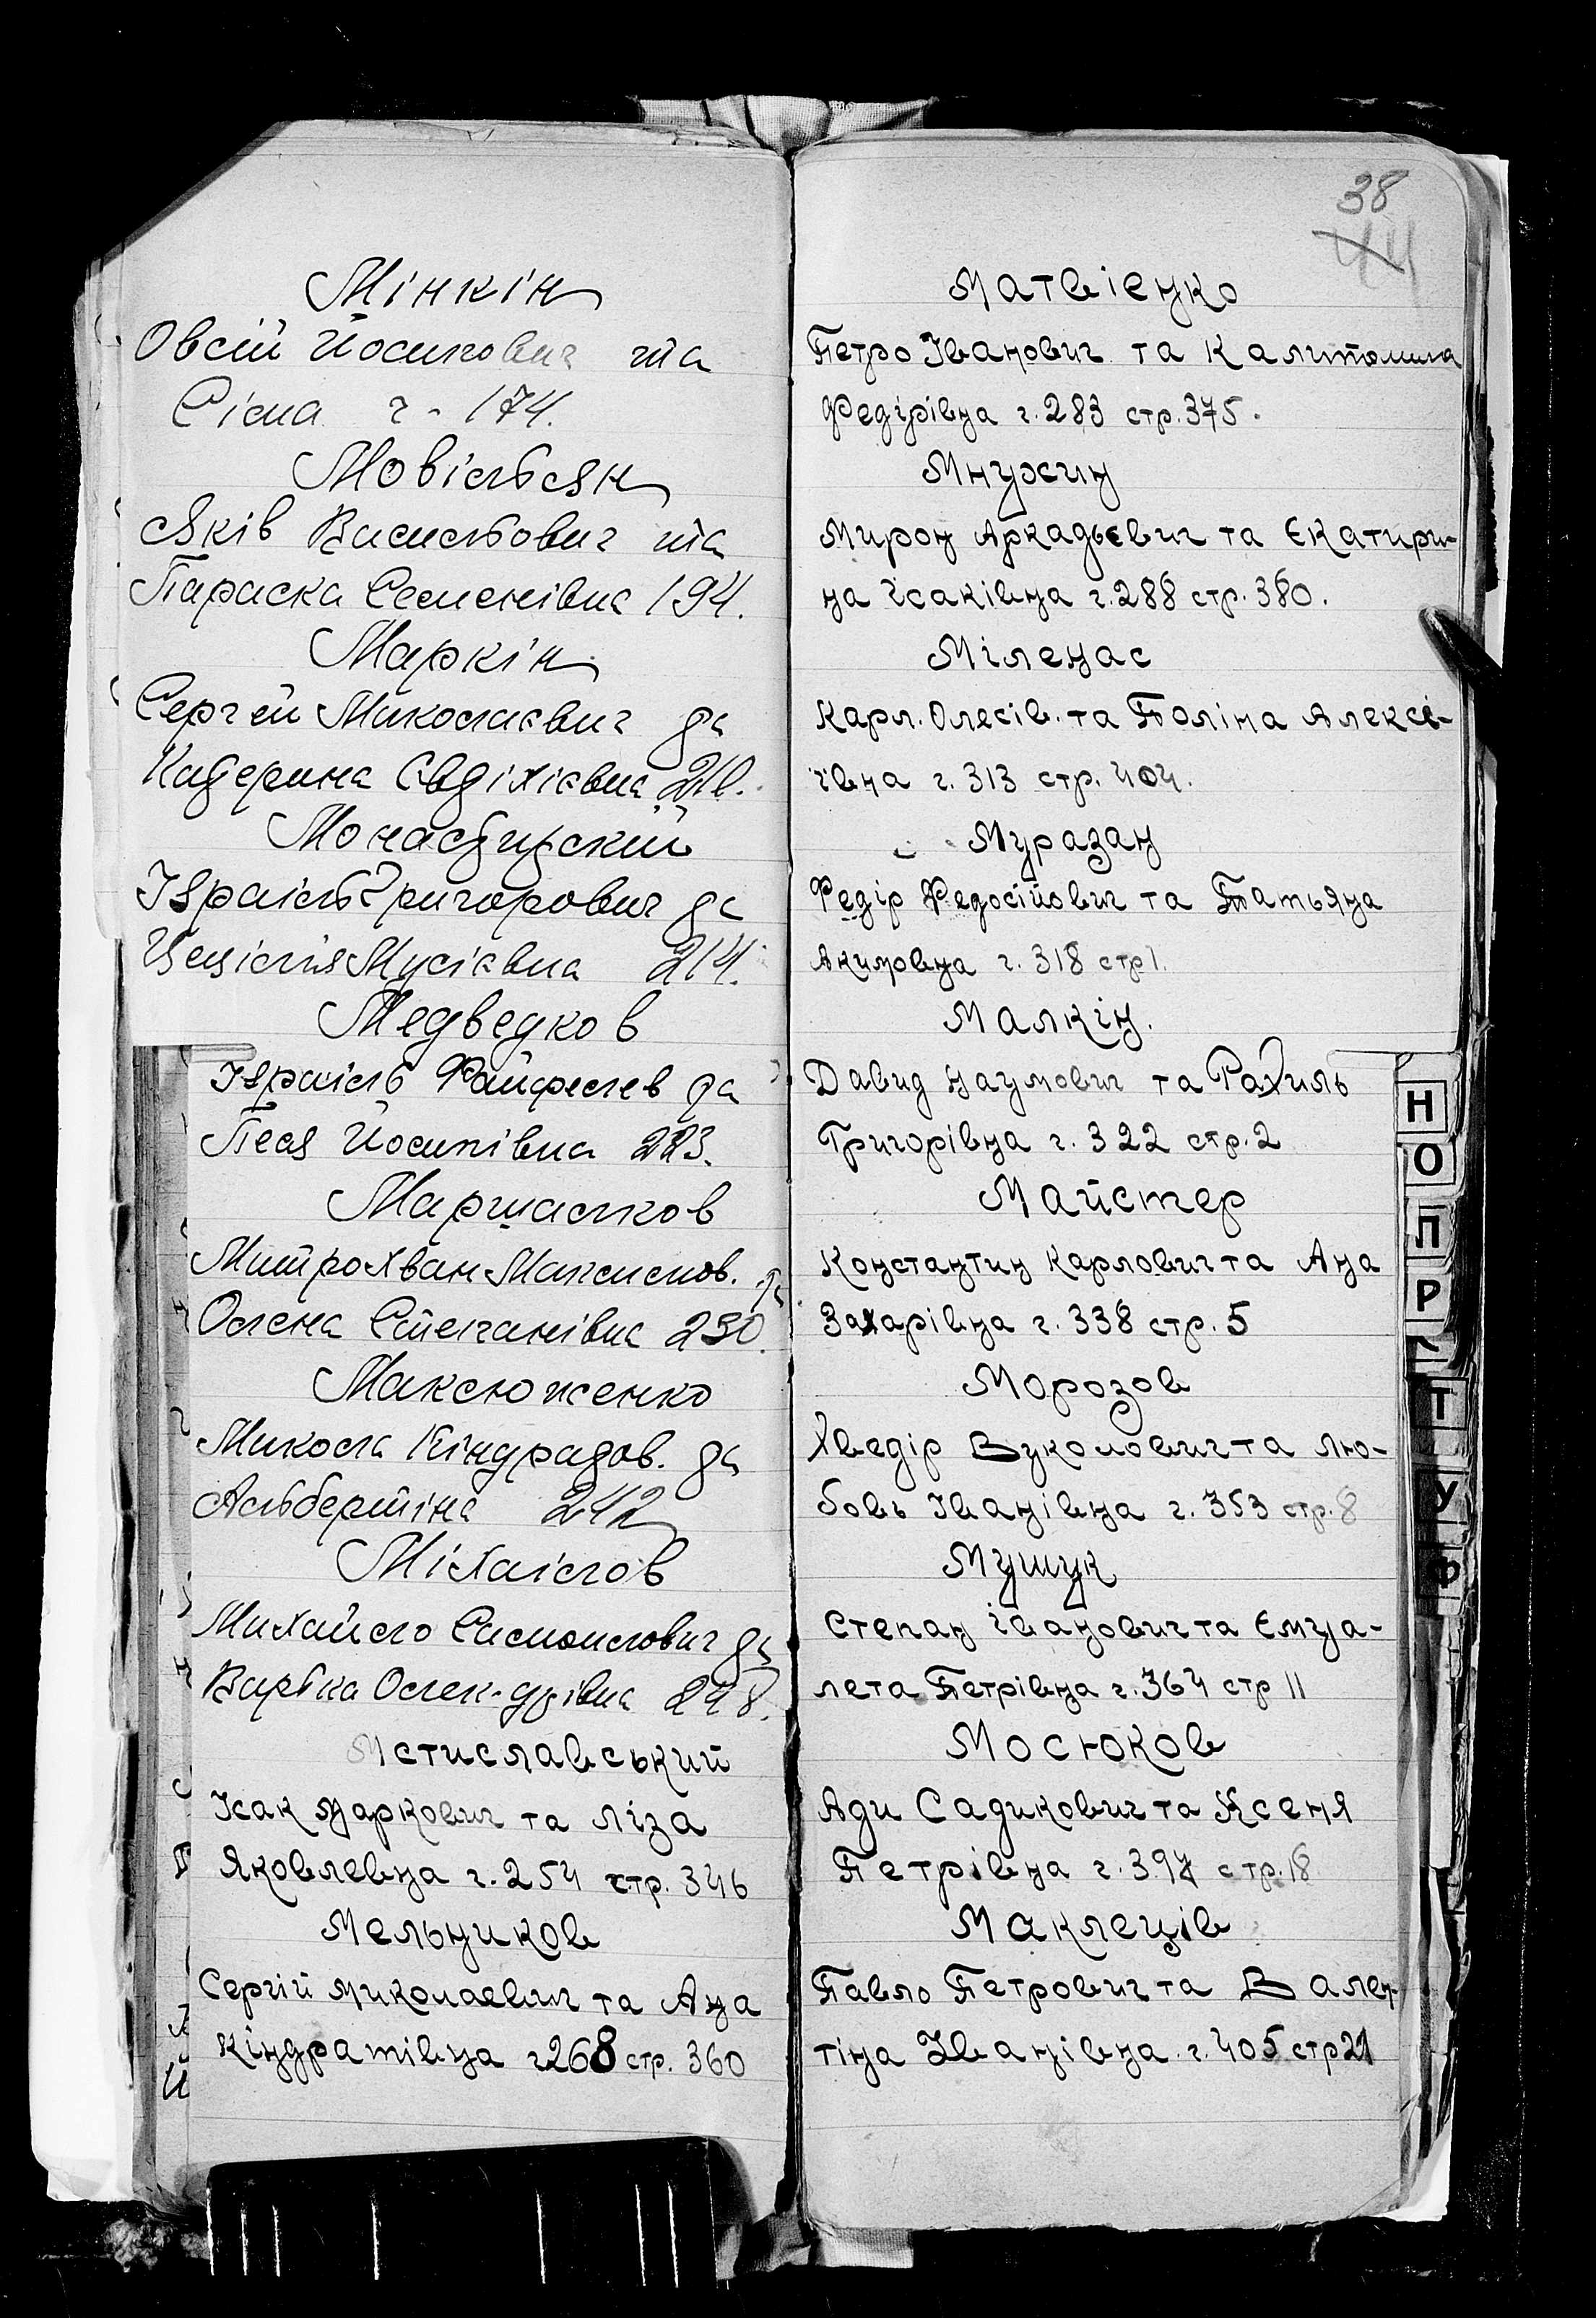 Мінкін
Овсій Йосипович та
Сіма ч. 174.
Мовільян
Яків Васильович та
Параска Семенівна 194.
Маркін
Сергей Миколаевич та
Катерина Овдіхіевна 210.
Монастирскій
Ізраіль Григорович та
Цецілія Мусіевна 214.
Медведков
Ізраіль Файфелев та
Песя Йосипівна 223.
Маршалков
Митрохван Максимов. та
Олена Степанівна 230.
Максюженко
Микола Кіндратов. та
Альбертіна 242
Міхаілов
Михайло Самоилович та
Варька Олек-дрівна 248.
Мстиславський
Ісак Маркович та Ліза
Яковлевна ч. 254 стр. 346
Мельников
Сергій Миколаевич та Ана
Кіндратівна ч 268 стр. 360
38
44
Матвіенко
Петро Іванович та Капитолина
Федірівна ч. 283 стр. 375.
Мнухин
Мирон Аркадьевич та Екатири-
на Ісаківна ч. 288 стр. 380.
Міленас
Карл. Олесів. та Поліна Алексі-
ївна ч. 313 стр. 404.
Муразан
Федір Федосійович та Татьяна
Акимовна ч. 318 стр 1.
Малкін.
Давид Наумович та Рахиль
Григорівна ч. 322 стр. 2
Майстер
Константин Карлович та Ана
Захарівна ч. 338 стр. 5
Морозов
Хведір Вуколович та Лю-
бовь Іванівна ч. 353 стр. 8
Мушук
Степан Іванович та Ємца-
лета Петрівна ч. 364 стр 11
Мосюков
Ади Садикович та Ксеня
Петрівна ч. 397 стр. 18
Маклеців
Павло Петрович та Вален-
тіна Іванівна ч. 405 стр 21
Н
О
П
Р
Т
У
Ф